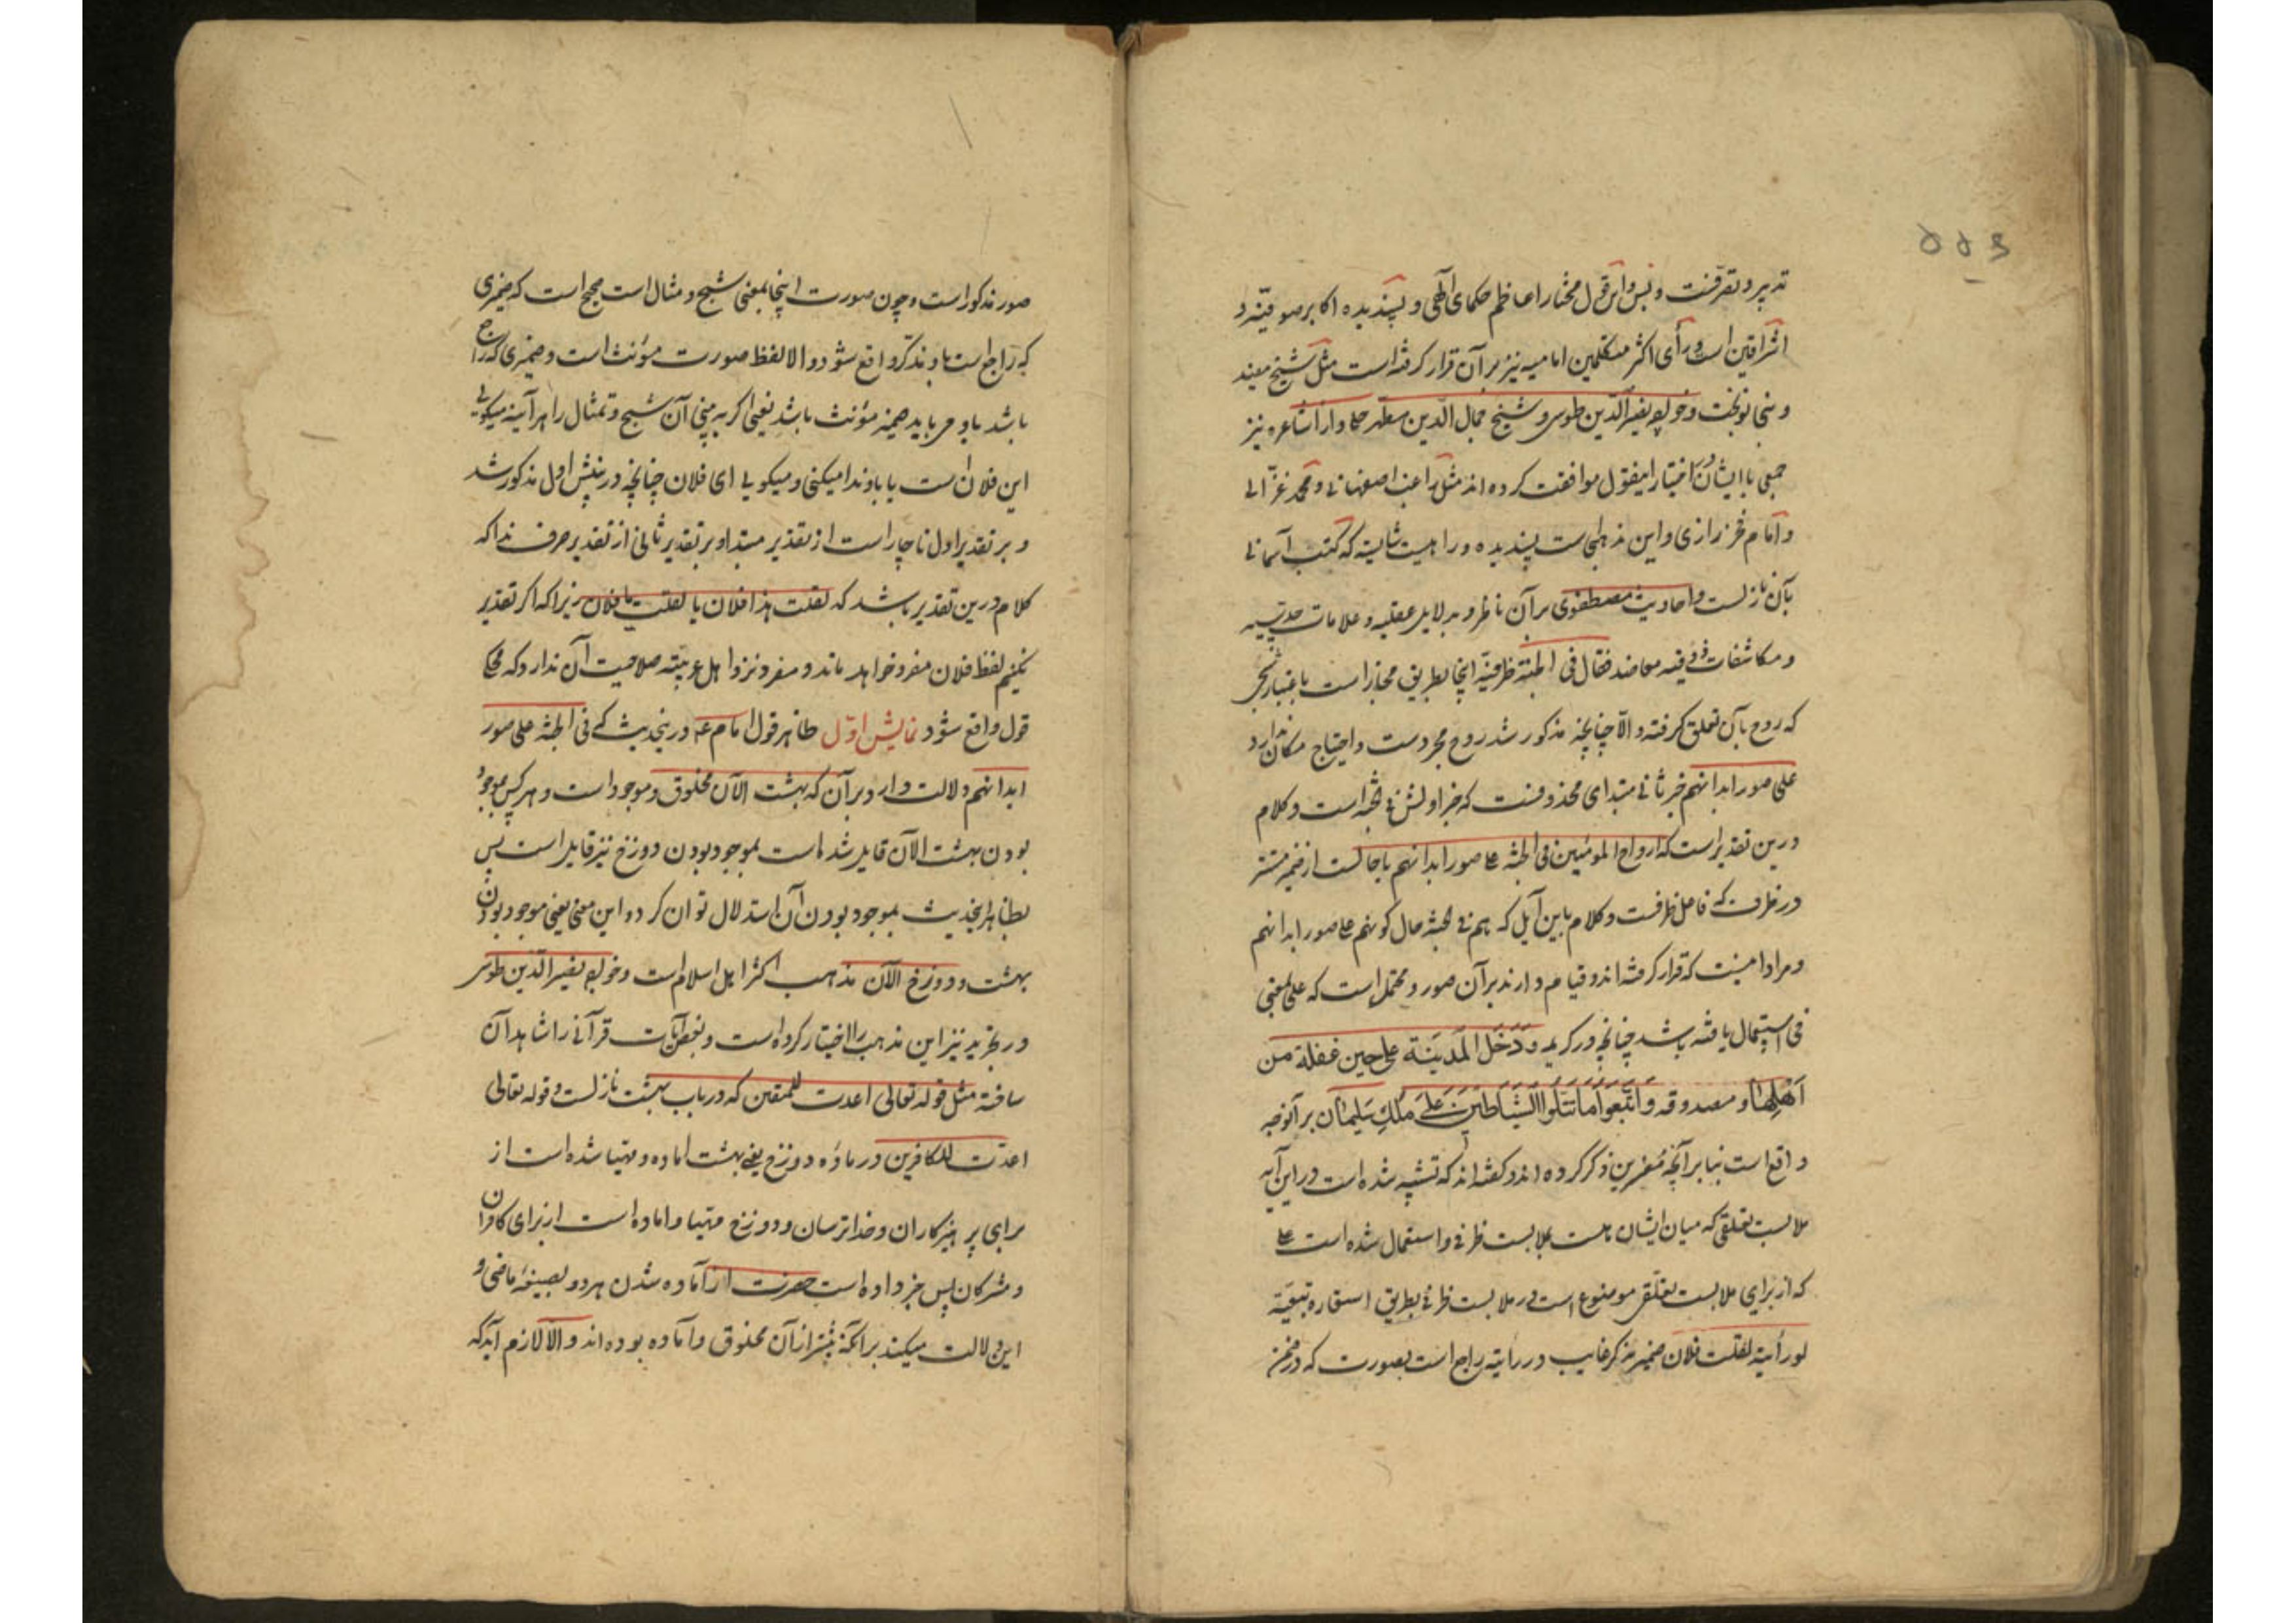 تدبیر و تصرفست و بس و این قول مختار اعاظم حکمای الهی و پسندیده اکابر صوفیه و
اشراقین است و رأی اکثر متکلمین امامیه نیز بر آن قرار گرفته است مثل شیخ مفید
و بنی نوبخت و خواجه نصیر الدین طوسی و شیخ جمال الدین مطهر حلی و از اشاعره نیز
جمعی با ایشان در اختیار اینقول موافقت کرده اند مثل راغب اصفهانی و محمد غزالی
و امام فخر رازی و این مذهبی است پسندیده و راهیست شایسته که کتب آسمانی
بآن نازلست و احادیث مصطفوی بر آن ناظر و بدلایل عقلیه و علامات حدسیه
و مکاشفات ذوقیه معاضد فقال فی الجنة ظرفیة اینجا بطریق مجاز است باعتبار
که روح بآن تعلق گرفته و الا چنانچه مذکور شد روح مجردست و احتیاج مکان ندارد
علی صور ابدانهم خبر ثانی مبتدای محذوفست که خبر اولش فی الجنه است و کلام
درین تقدیر است که ارواح المومنین فی الجنة علی صور ابدانهم یا حالست از ضمیر مستتر
در ظرف که فاعل ظرفست و کلام باین آیل که هم فی الجنة حال کونهم علی صور ابدانهم
و مراد اینست که قرار گرفته اند و قیام دارند بر آن صور و محتمل است که علی بمعنی
فی استعمال یافته باشد چنانچه در کریمه وَدَخَلَ الْمَدینَة علی حین غفلة من
اَهْلِهٰا و مصدوقه وَاتَّبَعوُا مَا تَتْلوُا الشَّیاطین عَلیٰ مُلْكِ سُلیمان بر آنوجه
واقع است بنا بر آنچه مفسرین ذکر کرده اند و گفته اند که تشبیه شده است در این آیه
ملابست تعلقی که میان ایشان هست بملابست ظرفی و استعمال شده است علی
که از برای ملابست تعلقی موضوع است در ملابست ظرفی بطریق استعاره تبعیة
لو رأیته لقلت فلان ضمیر مذکر غایب در رأیته راجع است بصورت که در ضمن
صور مذکور است و چون صورت اینجا بمعنی شبح و مثال است صحیح است که ضمیری
که راجع است باو مذکر واقع شود و الا لفظ صورت مؤنث است و ضمیری که راجع
باشد باو می باید ضمیر مؤنث باشد یعنی اگر به بینی آن شبح و تمثال را هر آینه میگویی
این فلان است یا باو ندا میکنی و میگویی ای فلان چنانچه در اول مذکور شد
و بر تقدیر اول ناچار است از تقدیر مبتدا و بر تقدیر ثانی از تقدیر حرف ندا که
کلام درین تقدیر باشد که لقلت هذا فلان یا لقلت یا فلان زیرا که اگر تقدیر
نکنیم لفظ فلان مفرد خواهد ماند و مفرد نزد اهل عربیته صلاحیت آن ندارد که محکی
قول واقع شود نمایش اوّل ظاهر قول امام عه درینحدیث که فی الجنة علی صور
ابدانهم دلالت دارد بر آن که بهشت الآن مخلوق و موجود است و هر کس بموجود
بودن بهشت الآن قایل شده است بموجود بودن دوزخ نیز قایل است پس
بظاهر اینحدیث بموجود بودن آن استدلال توان کرد و این معنی یعنی موجود بودن
بهشت و دوزخ الآن مذهب اکثر اهل اسلام است و خواجه نصیر الدین طوسی
در تجرید نیز این مذهب را اختیار کرده است و بعض آیات قرآنی را شاهد آن
ساخته مثل قوله تعالی اعدت للمتقین که در باب بهشت نازلست و قوله تعالی
اعدّت للکافرین در ماده دوزخ یعنی بهشت اماده و مهیا شده است از
برای پرهیزکاران و خداترسان و دوزخ مهیا و اماده است از برای کافران
و مشرکان پس خبر داده است حضرت از آماده شدن هر دو بصیغه ماضی و
این دلالت میکند بر آنکه پیشتر از آن مخلوق و آماده بوده اند و الّا لازم آید که